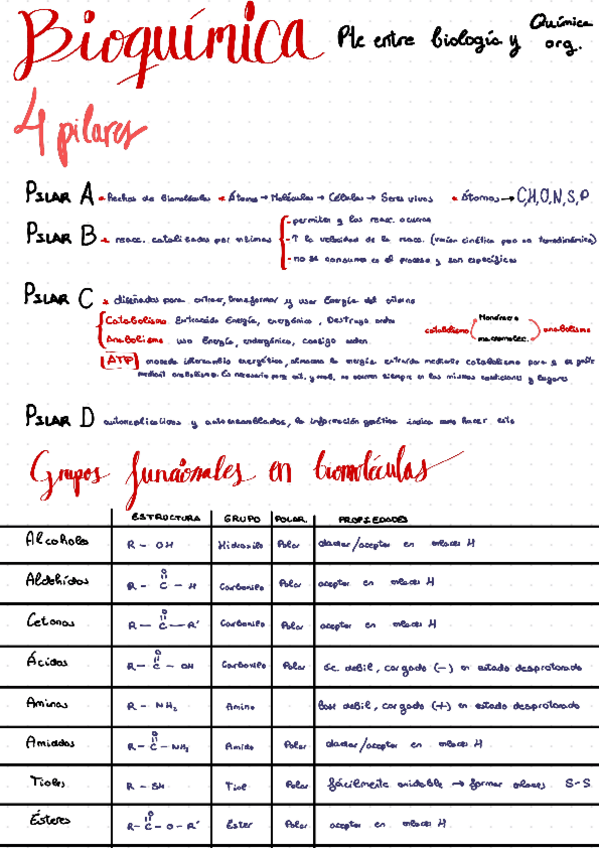 Bioquímica Pte entre biología y Química org.
4 pilares
PILAR A • Hechos de biomoléculas • Átomos → Moléculas → Células → Seres vivos • Átomos → C,H,O,N,S,P
PILAR B • reacc. catalizadas por enzimas
- permiten q las reacc. ocurran
- ↑ la velocidad de la reacc. (varían cinética pero no termodinámica)
- no se consumen en el proceso y son específicos
PILAR C • diseñados para extraer, transformar y usar Energía del entorno
Catabolismo Extrayendo Energía, exergónico, Destruyo orden
Anabolismo uso Energía, endergónico, consigo orden
catabolismo Monómero macromolec. anabolismo
ATP moneda intercambio energético, almacena la energía extraída mediante catabolismo para q se gaste
mediant anabolismo. Es necesario para cat. y anab. no ocurren siempre en las mismas condiciones y lugares
PILAR D autoreplicativos y autoensamblados, la información genética indica como hacer esto
Grupos funcionales en biomoléculas
ESTRUCTURA GRUPO POLAR. PROPIEDADES
Alcoholes R - OH Hidroxilo Polar dador/aceptor en enlaces H
Aldehídos R - C - H Carbonilo Polar aceptor en enlaces H
O
Cetonas R - C - R' Carbonilo Polar aceptor en enlaces H
O
Ácidos R - C - OH Carboxilo Polar ác. debil, cargado (-) en estado desprotonado
O
Aminas R - NH₂ Amino Base debil, cargado (+) en estado desprotonado
Amidas R - C - NH₂ Amido Polar dador/aceptor en enlaces H
O
Tioles R - SH Tiol Polar fácilmente oxidable → formar enlaces S-S
Ésteres R - C - O - R' Éster Polar aceptor en enlaces H
O